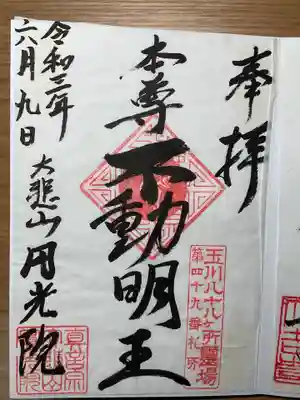 奉拝
玉川八十八ヶ所霊場
第四十九番札所
本尊不動明王
大悲山円光院
令和三年
六月九日
真言宗